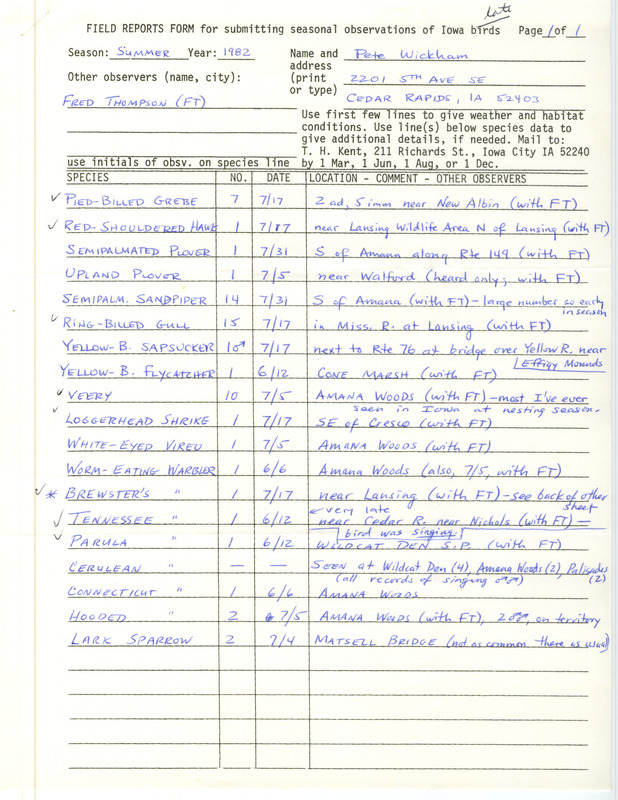 late
FIELD REPORTS FORM for submitting seasonal observations of Iowa birds Page 1 of 1
Season: SUMMER Year: 1982 Name and Pete Wickham
address
Other observers (name, city): (print 2201 5TH AVE SE
or type)
FRED THOMPSON (FT) CEDAR RAPIDS, IA 52403
Use first few lines to give weather and habitat
conditions. Use line(s) below species data to
give additional details, if needed. Mail to:
T. H. Kent, 211 Richards St., Iowa City IA 52240
use initials of obsv. on species line by 1 Mar, 1 Jun, 1 Aug, or 1 Dec.
SPECIES NO. DATE LOCATION - COMMENT - OTHER OBSERVERS
✓ PIED-BILLED GREBE 7 7/17 2 ad, 5 imm near New Albin (with FT)
✓ RED-SHOULDERED HAWK 1 7/17 near Lansing Wildlife Area N of Lansing (with FT)
SEMIPALMATED PLOVER 1 7/31 S of Amana along Rte 149 (with FT)
UPLAND PLOVER 1 7/5 near Walford (heard only; with FT)
SEMIPALM. SANDPIPER 14 7/31 S of Amana (with FT) - large number so early
in season
✓ RING-BILLED GULL 15 7/17 in Miss. R. at Lansing (with FT)
YELLOW-B. SAPSUCKER 1♂ 7/17 next to Rte 76 at bridge over Yellow R. near
Effigy Mounds
YELLOW-B. FLYCATCHER 1 6/12 CONE MARSH (with FT)
✓ VEERY 10 7/5 AMANA WOODS (with FT) - most I've ever
seen in Iowa at nesting season.
✓ LOGGERHEAD SHRIKE 1 7/17 SE of Cresco (with FT)
WHITE-EYED VIREO 1 7/5 AMANA WOODS (with FT)
WORM-EATING WARBLER 1 6/6 Amana Woods (also, 7/5, with FT)
✓ * BREWSTER'S " 1 7/17 near Lansing (with FT) - see back of other
sheet
very late
✓ TENNESSEE " 1 6/12 near Cedar R. near Nichols (with FT) -
bird was singing.
✓ PARULA " 1 6/12 WILDCAT DEN S.P. (with FT)
CERULEAN " — — SEEN at Wildcat Den (4), Amana Woods (2), Palisades
(all records of singing ♂♂) (2)
CONNECTICUT " 1 6/6 AMANA WOODS
HOODED " 2 7/5 AMANA WOODS (with FT), 2♂♂, on territory
LARK SPARROW 2 7/4 MATSELL BRIDGE (not as common there as usual)